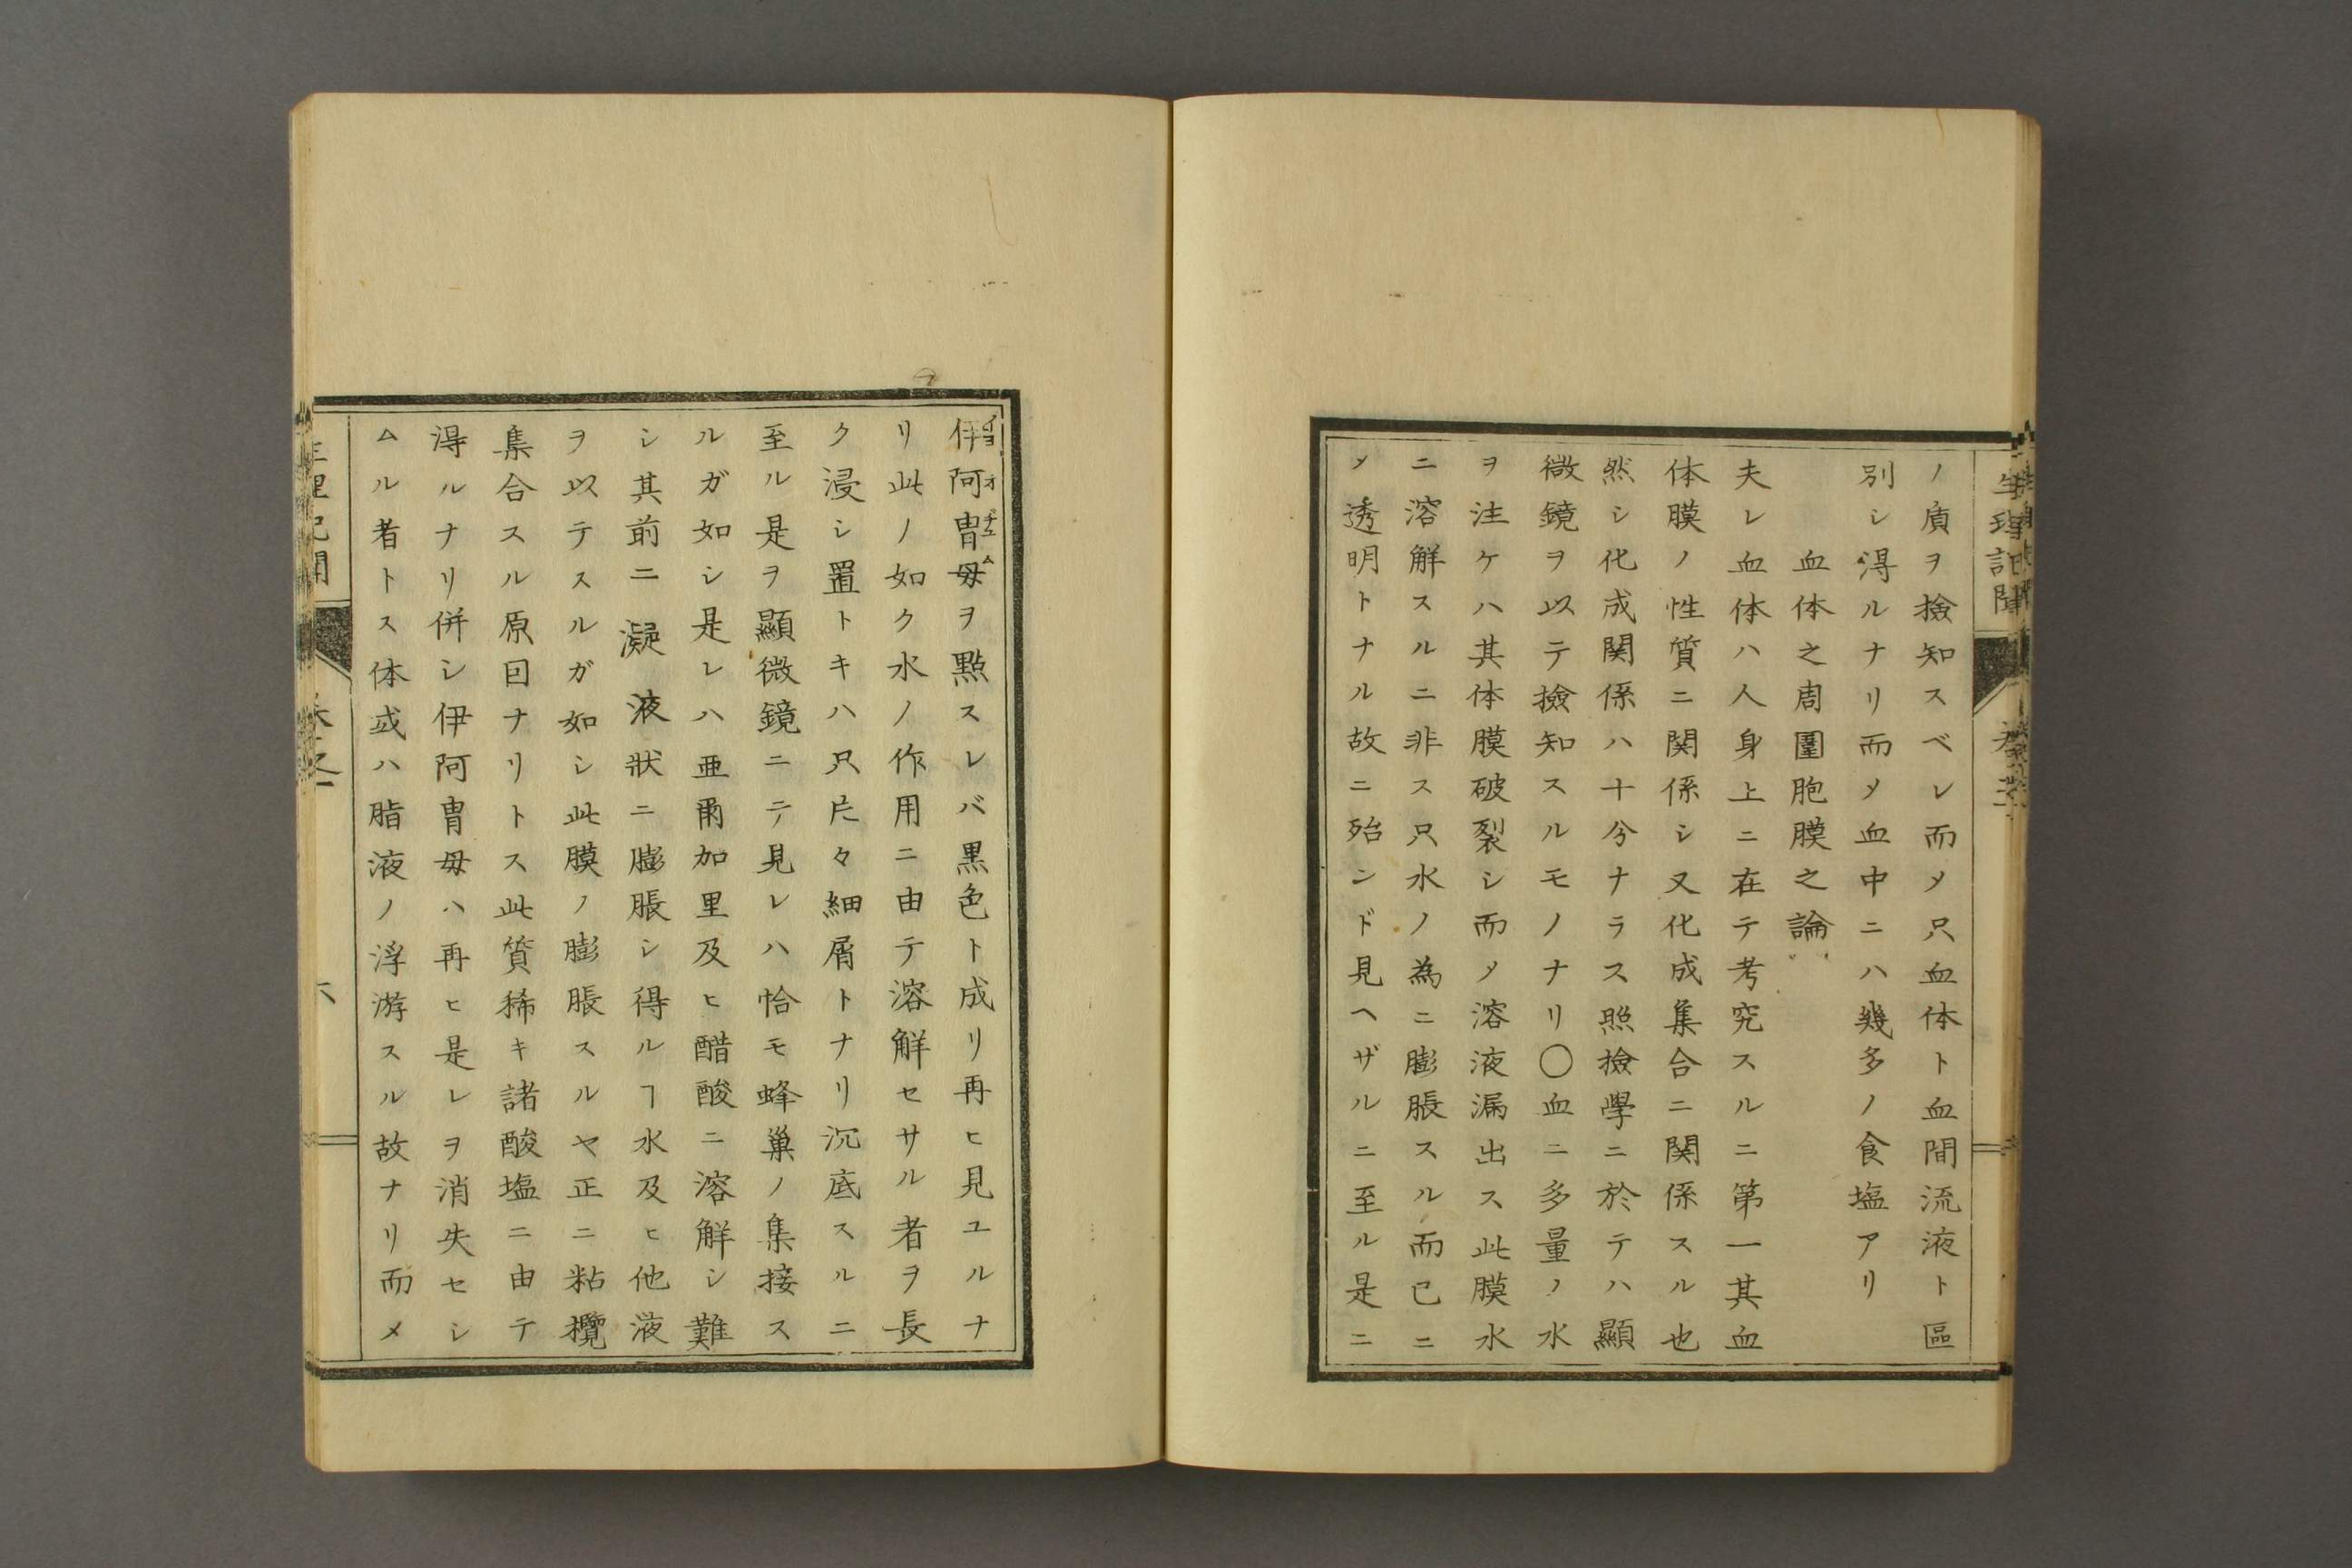 ノ質ヲ撿知スベレ而メ只血体ト血間流液ト區
別シ得ルナリ而メ血中ニハ幾多ノ食塩アリ
血体之周圍胞膜之論
夫レ血体ハ人身上ニ在テ考究スルニ第一其血
体膜ノ性質ニ関係シ又化成集合ニ関係スル也
然シ化成関係ハ十分ナラス照撿學ニ於テハ顯
微鏡ヲ以テ撿知スルモノナリ〇血ニ多量ノ水
ヲ注ケハ其体膜破裂シ而メ溶液漏出ス此膜水
ニ溶解スルニ非ス只水ノ為ニ膨脹スル而已ニ
メ透明トナル故ニ殆ンド見ヘザルニ至ル是ニ
伊阿胄母ヲ點スレバ黒色ト成リ再ヒ見ユルナ
リ此ノ如ク水ノ作用ニ由テ溶解セサル者ヲ長
ク浸シ置トキハ只片々細屑トナリ沉底スルニ
至ル是ヲ顯微鏡ニテ見レハ恰モ蜂巢ノ集接ス
ルガ如シ是レハ亜爾加里及ヒ醋酸ニ溶解シ難
シ其前ニ凝液状ニ膨脹シ得ルヿ水及ヒ他液
ヲ以テスルガ如シ此膜ノ膨脹スルヤ正ニ粘欖
集合スル原因ナリトス此質稀キ諸酸塩ニ由テ
得ルナリ併シ伊阿胄母ハ再ヒ是レヲ消失セシ
ムル者トス体或ハ脂液ノ浮游スル故ナリ而メ
六